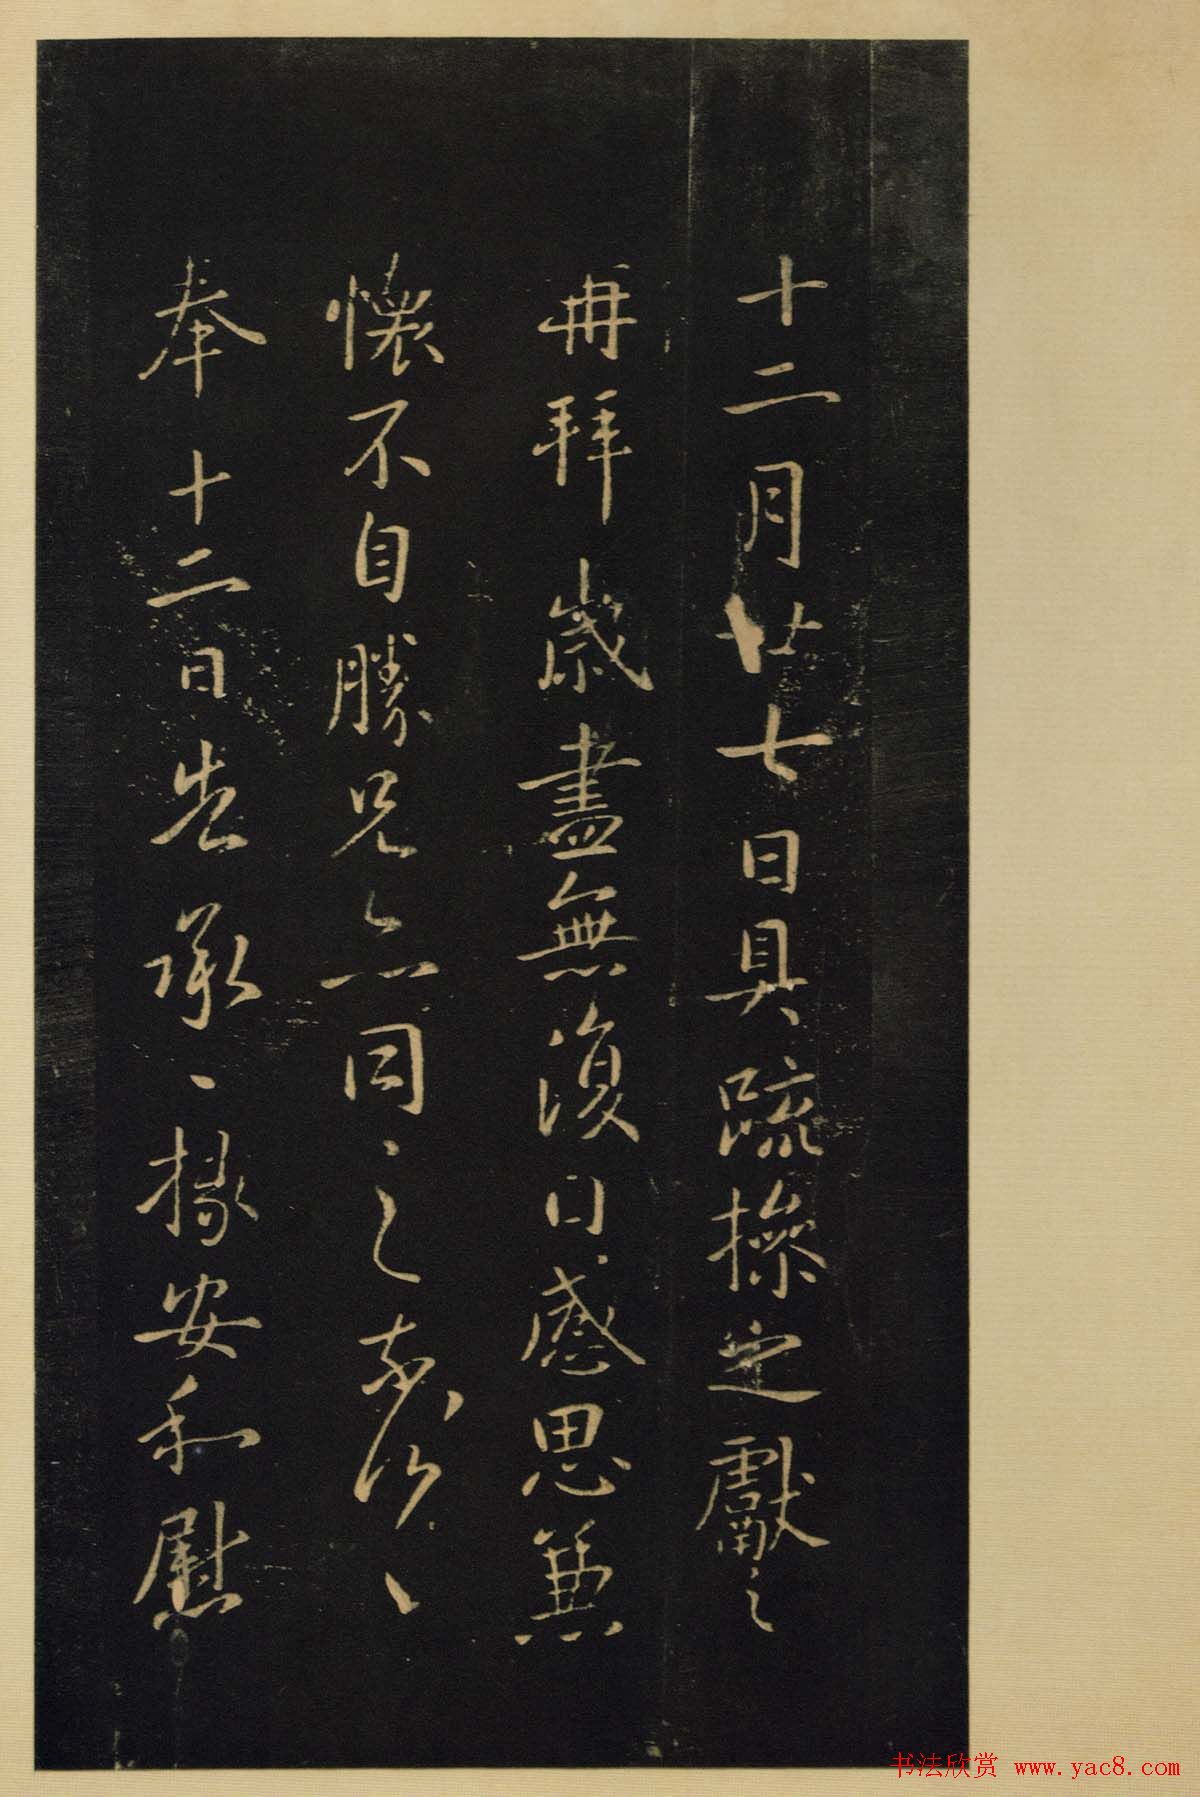 十二月廿七日具疏操之獻之
再拜歲盡無復日感思兼
懷不自勝兄亦同之奈何〻
奉十二日告承掾安和慰
书法欣赏 www.yac8.com